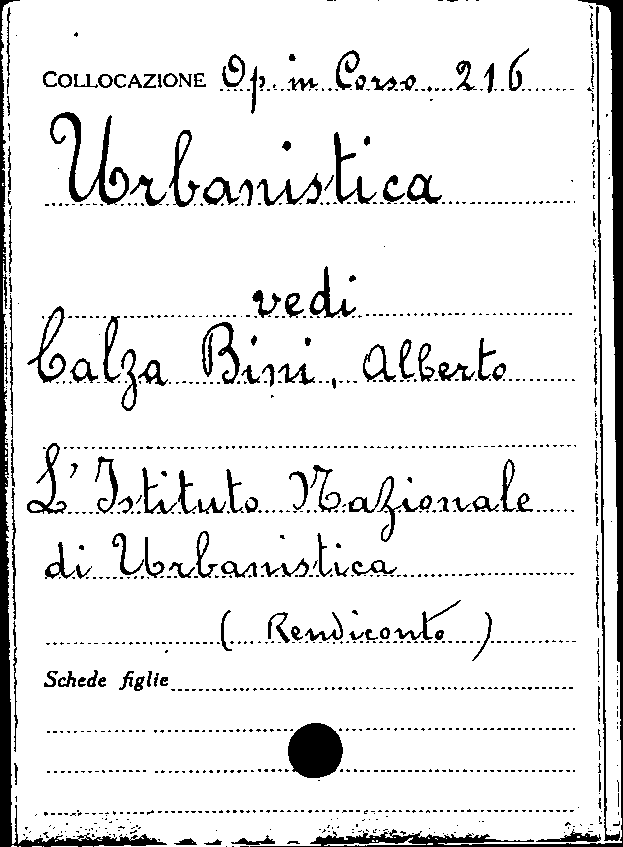 COLLOCAZIONE Op. in Corso. 216
Urbanistica
vedi
Calza Bini, Alberto
L'Istituto Nazionale
di Urbanistica
( Rendiconto )
Schede figlie